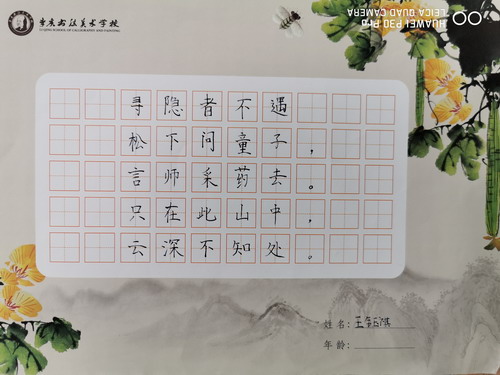 重庆书法美术学校
寻隐者不遇
松下问童子，
言师采药去。
只在此山中，
云深不知处。
姓名：王
年龄：
HUAWEI P30 Pro
LEICA QUAD CAMERA